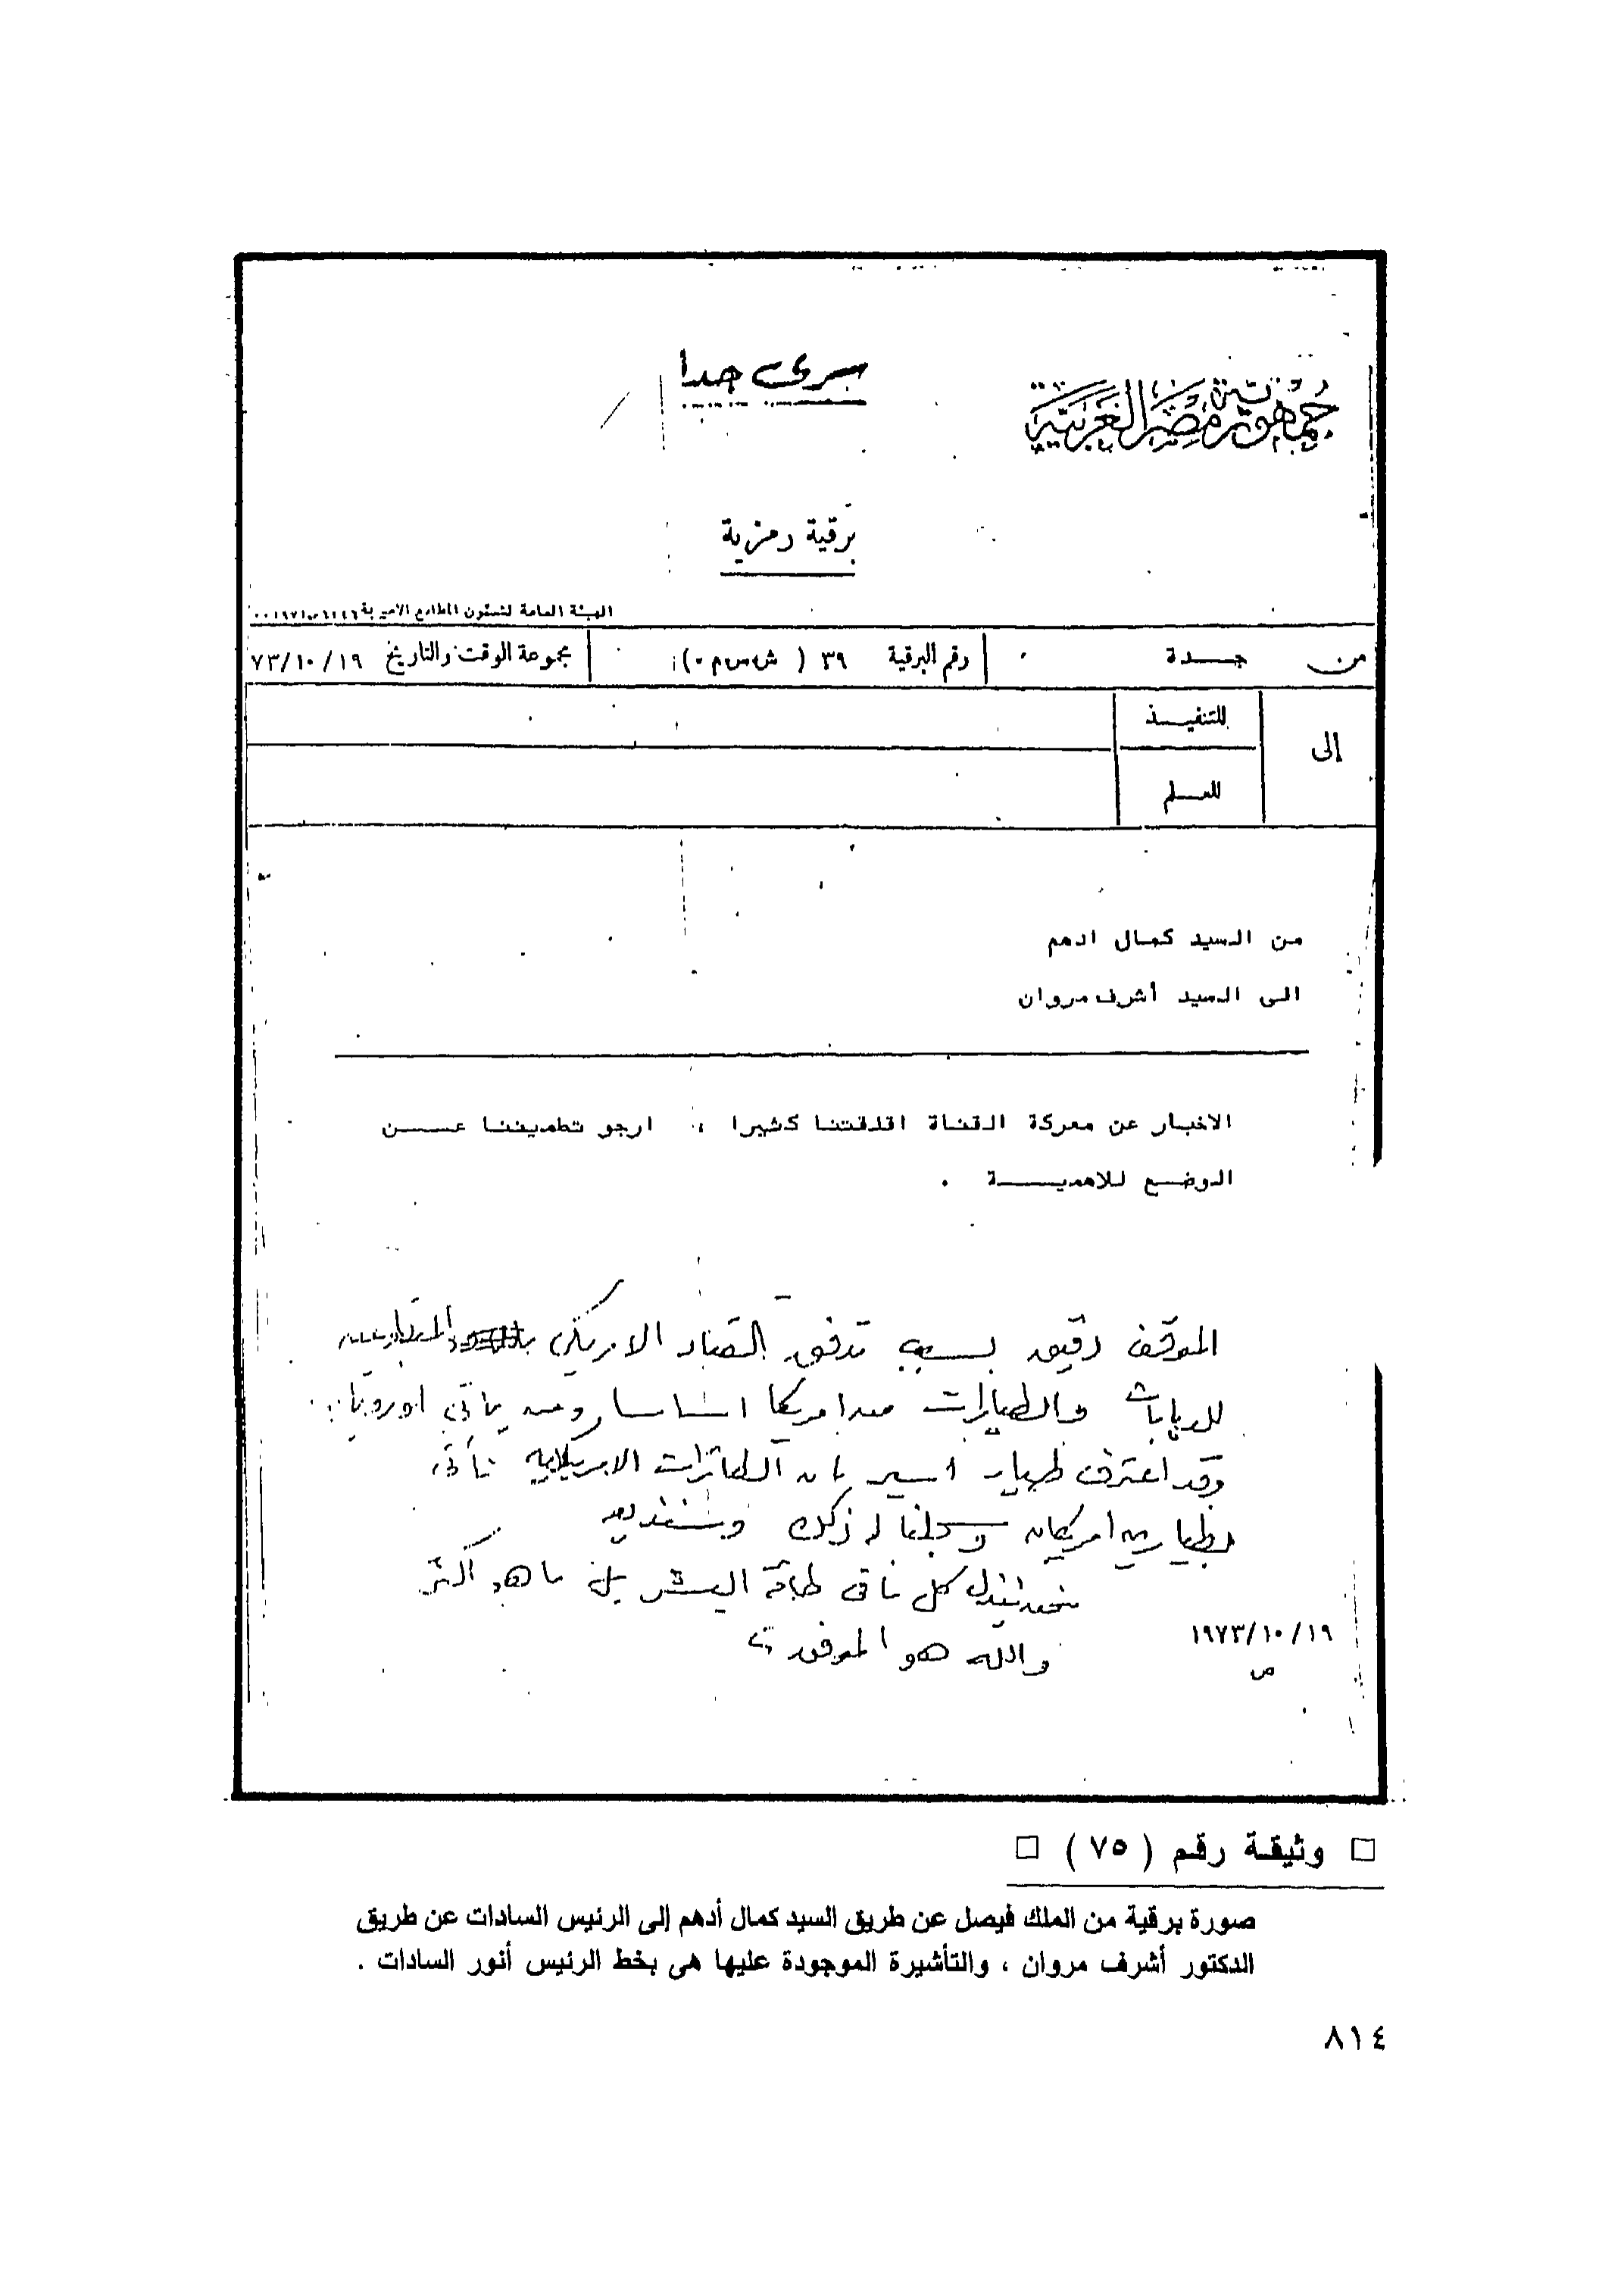 سرى جدا
جمهورية مصر العربية
برقية رمزية
الهيئة العامة لشئون المطابع الاميرية
من جدة رقم البرقية ٣٩ ( ش س م ٠ ) مجموعة الوقت والتاريخ ٧٣/١٠/١٩
إلى
للتنفيذ
للعلم
من السيد كمال ادهم
الى السيد أشرف مروان
الاخبار عن معركة القناة اقلقتنا كثيرا ، ارجو تطميننا عن
الوضع للاهمية .
الموقف دقيق بسبب تدفق العتاد الامريكى
للدبابات والطيارات من امريكا اساسا ومن باقى اوروبا
وقد اعترف طيار اسير بان الطائرات الامريكية تأتى
بطيارين امريكان وسجلنا له ذلك وسنذيعه
نحن نبذل كل ما فى طاقة البشر بل ما هو اكثر
والله هو الموفق
١٩٧٣/١٠/١٩
ص
□ وثيقة رقم ( ٧٥ ) □
صورة برقية من الملك فيصل عن طريق السيد كمال أدهم إلى الرئيس السادات عن طريق
الدكتور أشرف مروان ، والتأشيرة الموجودة عليها هى بخط الرئيس أنور السادات .
٨١٤